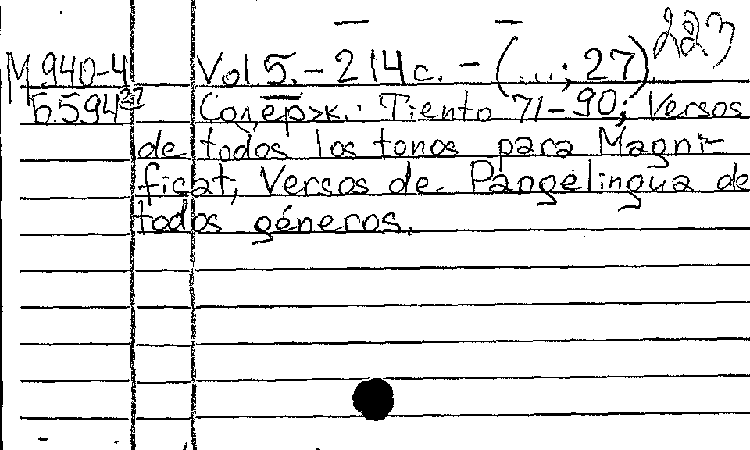 223
М 940-4 Vol 5. - 214 с. - (...; 27)
Б594 27 Содерж.: Tiento 71-90; Versos
de todos los tonos para Magni-
ficat, Versos de Pangelingua de
todos géneros.